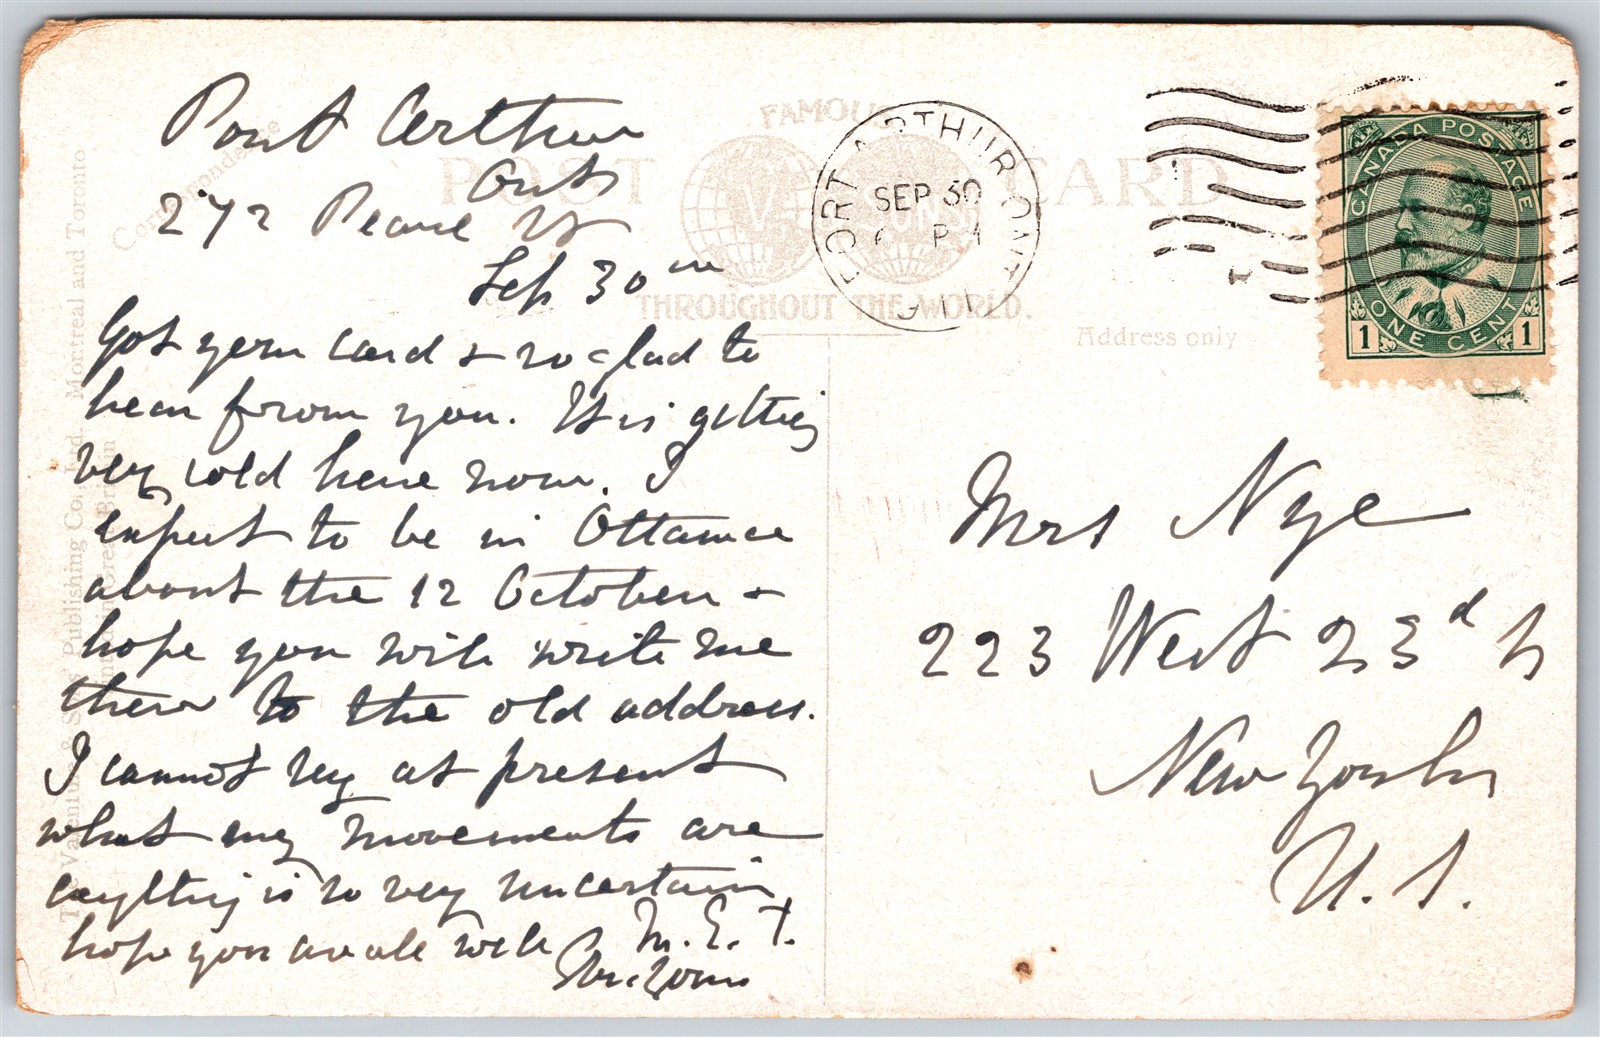 Port Arthur
Ont
272 Pearl St
Sep 30th
Got your card & so glad to
hear from you. It is getting
very cold here now. I
expect to be in Ottawa
about the 12 October &
hope you will write me
there to the old address.
I cannot say at present
what my movements are
everything is so very uncertain
hope you are all well M. E. T.
FAMOUS
POST CARD
THROUGHOUT THE WORLD.
Correspondence
Address only
Valentine & Sons' Publishing Co., Ltd. Montreal and Toronto
PORT ARTHUR ONT
SEP 30
CANADA POSTAGE
1 ONE CENT 1
Mrs Nye
223 West 23d St
New York
U. S.